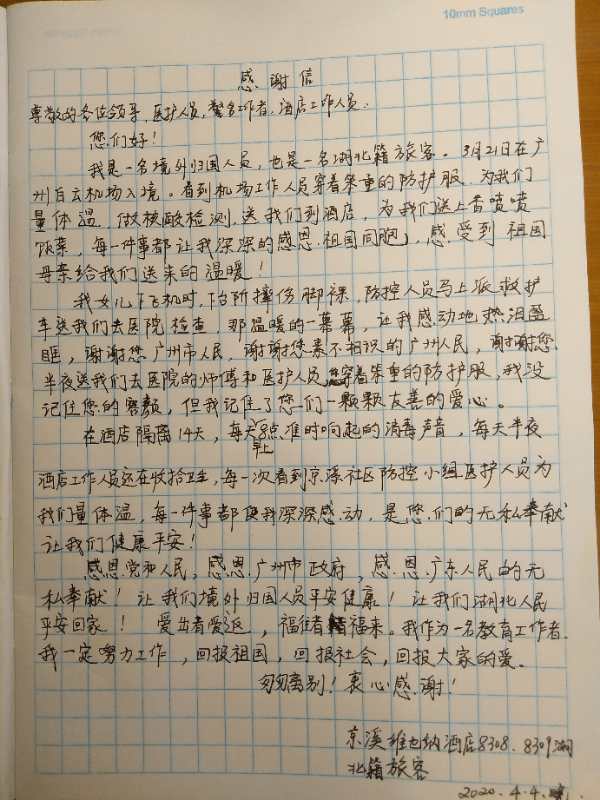 10mm Squares
感谢信
尊敬的各位领导、医护人员、警务工作者、酒店工作人员:
您们好!
我是一名境外归国人员,也是一名湖北籍旅客。3月21日在广
州白云机场入境。看到机场工作人员穿着笨重的防护服,为我们
量体温,做核酸检测,送我们到酒店,为我们送上香喷喷
饭菜,每一件事都让我深深的感恩祖国同胞,感受到祖国
母亲给我们送来的温暖!
我女儿下飞机时,下台阶摔伤脚裸,防控人员马上派救护
车送我们去医院检查,那温暖的一幕幕,让我感动地热泪盈
眶,谢谢您广州市人民,谢谢您素不相识的广州人民,谢谢您
半夜送我们去医院的师傅和医护人员,您穿着笨重的防护服,我没
记住您的容颜,但我记住了您们一颗颗友善的爱心。
在酒店隔离14天,每天早上8点准时响起的消毒声音,每天半夜
酒店工作人员还在收拾卫生,每一次看到京溪社区防控小组医护人员为
我们量体温,每一件事都使我深深感动,是您们的无私奉献
让我们健康平安!
感恩党和人民,感恩广州市政府,感恩广东人民的无
私奉献!让我们境外归国人员平安健康!让我们湖北人民
平安回家!爱出者爱返,福往者福来。我作为一名教育工作者
我一定努力工作,回报祖国,回报社会,回报大家的爱。
匆匆离别!衷心感谢!
京溪维也纳酒店8308、8309湖
北籍旅客
2020.4.4.